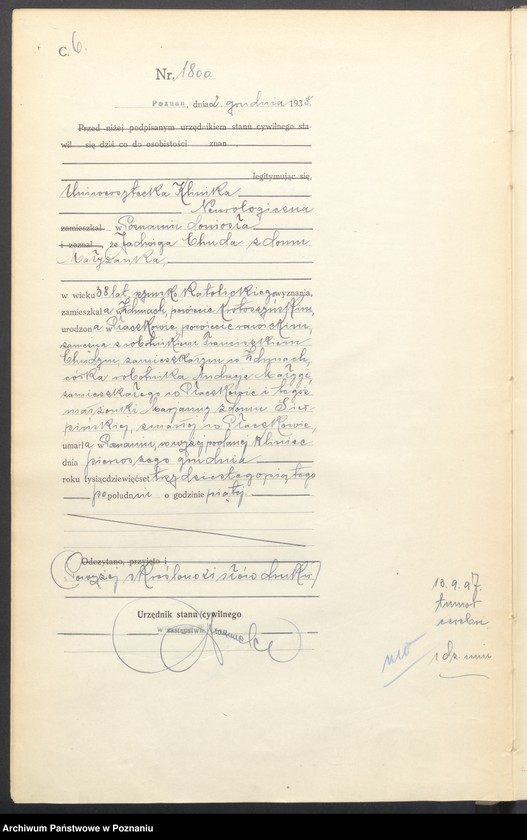 C. 6.
Nr. 1800.
Poznań, dnia 2. grudnia 1935.
Przed niżej podpisanym urzędnikiem stanu cywilnego sta-
wił się dziś co do osobistości znan ,
legitymując się,
Uniwersytecka Klinika
Neurologiczna
zamieszkał w Poznaniu doniosła
i zeznał , że Jadwiga Chuda z domu
w wieku 38 lat, rzymsko katolickiego wyznania,
zamieszkała w Zdunach, powiecie Krotoszyńskim,
urodzona w Płaczkowie, powiecie rawickim,
zamężna z robotnikiem Franciszkiem
Chudym, zamieszkałym w Zdunach,
córka robotnika Andrzeja
zamieszkałego w Płaczkowie i tegoż
małżonki Marjanny z domu Sier-
pińskiej, zmarłej w Płaczkowie,
umarła w Poznaniu, w wyżej podanej klinice
dnia pierwszego grudnia
roku tysiącdziewięćset trzydziestego piątego
po południu o godzinie piątej.
Odczytano, przyjęto i
Powyżej skreślono słów druku
Urzędnik stanu cywilnego
w zastępstwie
13.9.97.
tumor
Archiwum Państwowe w Poznaniu